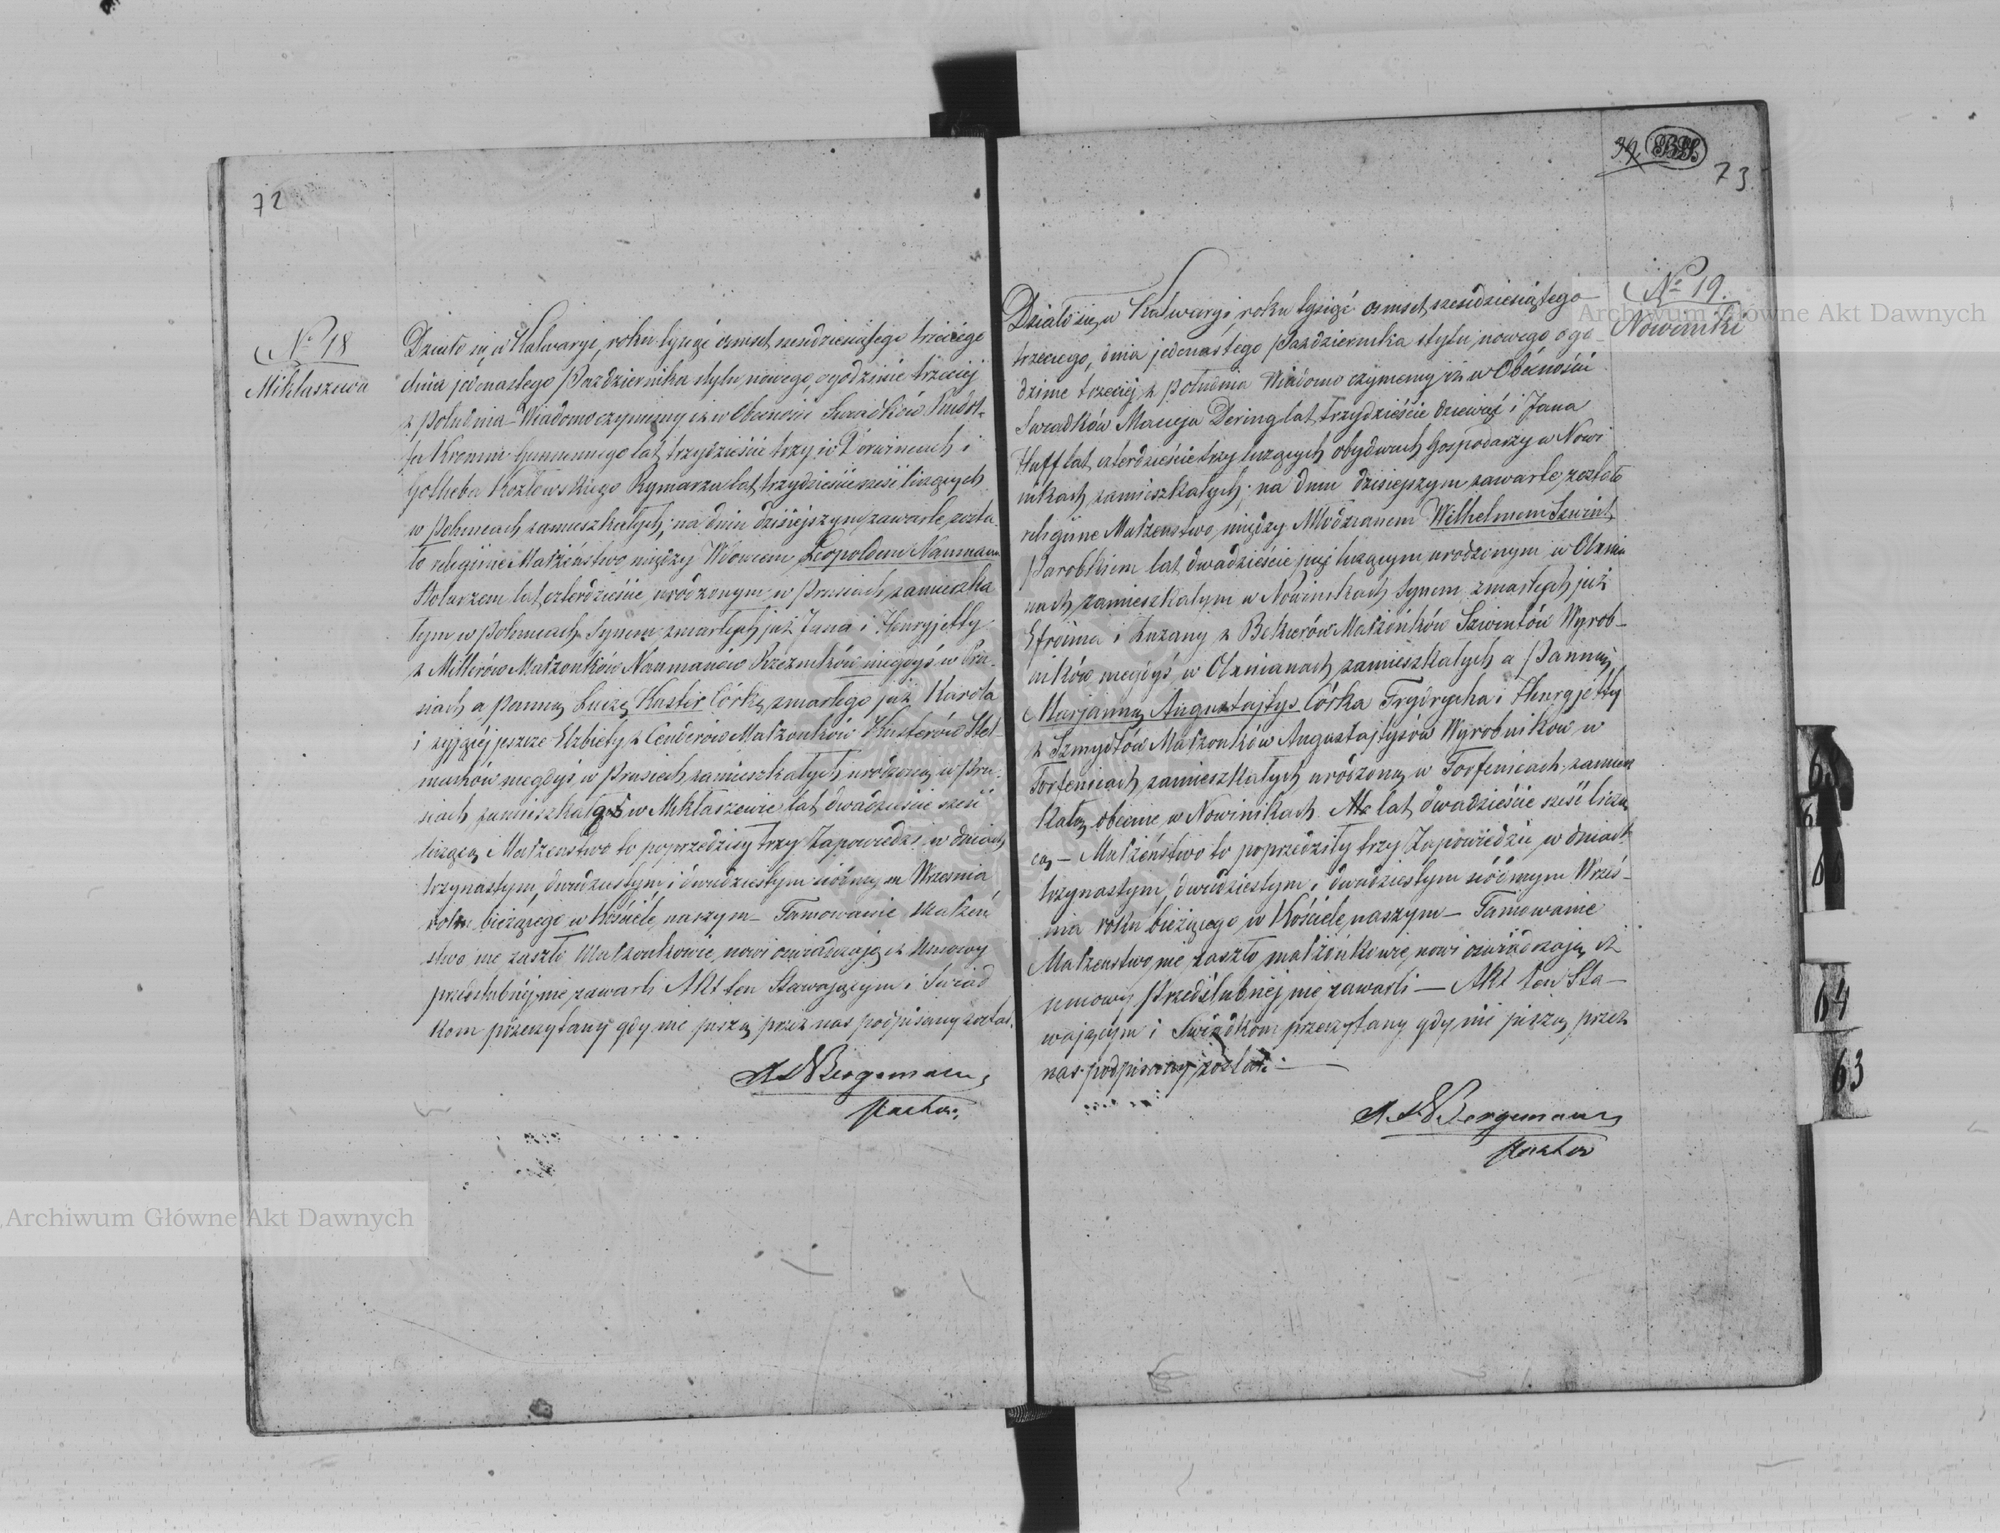 72
No 18
Mikłaszewa
Działo się w Kalwaryi, roku tysiąc osmset szesdziesiątego trzeciego
dnia jedenastego Pazdziernika stylu nowego o godzinie trzeciej
z południa Wiadomo czynimy iż w Obecności Swiadków Rudol-
fa Kremin Gumiennego lat trzydzieście trzy w i
Gotlieba Kozłowskiego Rymarza lat trzydzieście sześć liczących
w zamieszkałych, na dniu dzisiejszym zawarte zosta-
ło religijne Małżeństwo między Wdowcem Leopoldem Naumann
Stolarzem lat czterdzieście urodzonym w Prusiach zamieszka
łym w Synem zmarłych już Jana i Henryjetty
z Millerów Małżonków Naumanów niegdyś w Pru-
siach a Panną Luizą Kuster Córką zmarłego już Karola
i żyjącej jeszcze Elzbiety z Małżonków Kusterów Stel-
machów niegdyś w Prusiech zamieszkałych urodzoną w Pru-
siach zamieszkałą w Mikłaszewie lat dwadzieście sześć
liczącą Małżenstwo to poprzedziły trzy Zapowiedzi w dniach
trzynastym, dwudziestym i dwudziestym siódmym Wrzesnia
roku bieżącego w Kościele naszym – Tamowanie Małżeń
stwo nie zaszło Małżonkowie nowi oswiadczają iż Umowy
przedslubnej nie zawarli Akt ten Stawającym i Swiad
kom przeczytany gdy nie piszą przez nas podpisany został.
Bergemann
Pastor
73
No 19.
Nowiniki
Działo się w Kalwaryi roku tysiąć osmset szesdziesiątego
trzeciego, dnia jedenastego Pazdziernika stylu nowego o go-
dzinie trzeciej z południa Wiadomo czynimy iż w Obecności
Swiadków Macieja Dering lat trzydzieście dziewięć i Jana
Huff lat czterdzieście trzy liczących obydwuch Gospodarzy w Nowi
nikach zamieszkałych, na dniu dzisiejszym zawarte zostało
religijne Małżenstwo między Młodzianem Wilhelmem Szwint
Parobkiem lat dwadzieście pięć liczącym urodzonym w Olxnia
nach zamieszkałym w Nowinikach Synem zmarłych już
Efroima i Zuzany z Bekierów Małżonków Szwintów Wyrob-
ników niegdyś w Olxnianach zamieszkałych a Panną
Marjanną Augustajtys Córką Frydrycha i Henryjetty
z Szmydtów Małżonków Augustajtysów Wyrobników w
zamieszkałych urodzoną w zamiesz
kałą obecnie w Nowinikach lat dwadzieście sześć liczą
cą – Małżeństwo to poprzedziły trzy Zapowiedzie w dniach
trzynastym, dwudziestym i dwudziestym siódmym Wrześ-
nia roku bieżącego w Kościele naszym – Tamowanie
Małżenstwo nie zaszło małżonkowie nowi oświadczają iż
umowy Przedślubnej nie zawarli – Akt ten Sta-
wającym i Swiadkom przeczytany gdy nie piszą przez
nas podpisany został. –
Bergemann
Pastor
64
63
Archiwum Główne Akt Dawnych
Archiwum Główne Akt Dawnych